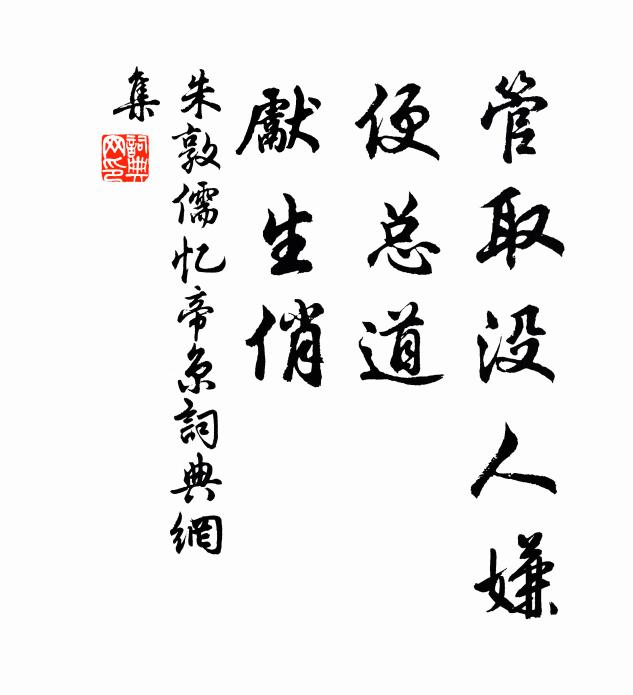 管取没人嫌
便总道
獻生俏
朱敦儒忆帝京詞典網
集
詞典
网印